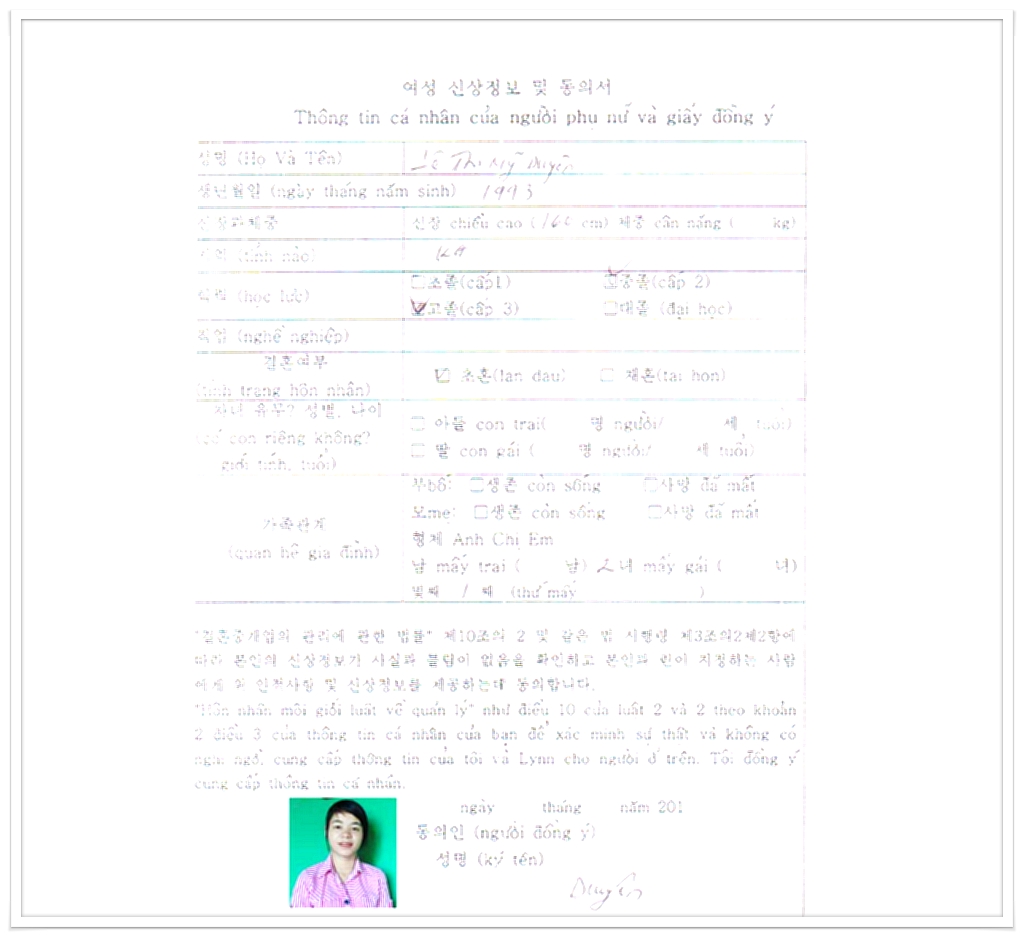 여성 신상정보 및 동의서
Thông tin cá nhân của người phụ nữ và giấy đồng ý
성명 (Họ Và Tên) Lê Thị Mỹ Duyên
생년월일 (ngày tháng năm sinh) 1993
신장과체중 신장 chiều cao ( 160 cm) 체중 cân nặng ( kg)
지역 (tỉnh nào)
학력 (học lưc) 초졸(cấp1) 중졸(cấp 2)
고졸(cấp 3) 대졸 (đại học)
직업 (nghề nghiệp)
결혼여부
(tình trạng hôn nhân) 초혼(lan dau) 재혼(tai hon)
자녀 유무? 성별, 나이
(có con riêng không?
giới tính, tuổi)
아들 con trai( 명 người/ 세 tuổi)
딸 con gái ( 명 người/ 세 tuổi)
가족관계
(quan hệ gia đình)
부bố: 생존 còn sống 사망 đã mất
모mẹ: 생존 còn sống 사망 đã mất
형제 Anh Chị Em
남 mấy trai ( 남) 2 녀 mấy gái ( 녀)
몇째 1 째 (thứ mấy )
"결혼중개업의 관리에 관한 법률" 제10조의 2 및 같은 법 시행령 제3조의2제2항에
따라 본인의 신상정보가 사실과 틀림이 없음을 확인하고 본인과 린이 지정하는 사람
에게 위 인적사항 및 신상정보를 제공하는데 동의합니다.
"Hôn nhân môi giới luật về quản lý" như điều 10 của luật 2 và 2 theo khoản
2 điều 3 của thông tin cá nhân của bạn để xác minh sự thật và không có
ngại ngờ, cung cấp thông tin của tôi và Lynn cho người ở trên. Tôi đồng ý
cung cấp thông tin cá nhân.
ngày tháng năm 201
동의인 (người đồng ý)
성명 (ký tên)
Duyên